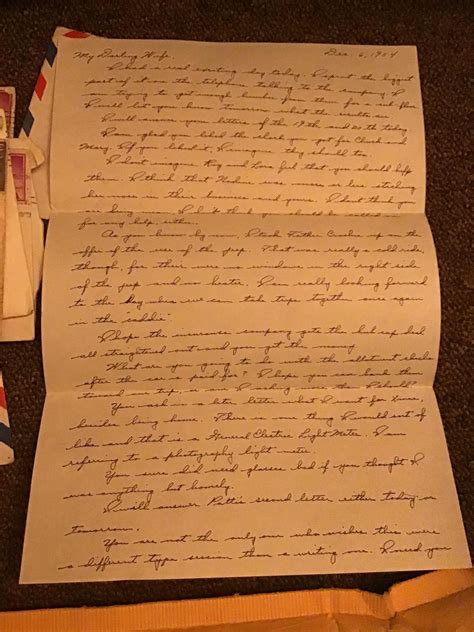 My Darling Wife, Dec. 6, 1954
I had a real exciting day today. I spent the biggest
part of it on the telephone talking to the company. I
am trying to get enough lumber from them for a sub-floor.
I will let you know tomorrow what the results are.
I will answer your letters of the 19th and 20th today.
I am glad you liked the clock you got for Chuck and
Mary. If you liked it, I imagine they should too.
I don't imagine Kay and Lou feel that you should help
them. I think that was more or less sticking
her nose in their business and yours. I don't think you
are being mean. I think you should be
for any help either.
As you know by now, I took Father up on the
offer of the use of the jeep. That was really a cold ride,
though, for their were no windows in the right side
of the jeep and no heater. I am really looking forward
to the day when we can take trips together once again
in the "caddie".
I hope the insurance company gets the hub cap deal
all straightened out and you get the money.
What are you going to do with the allotment checks
after the car is paid for? I hope you can bank them
toward our trip, or am I rushing
You ask in a later letter what I want for Xmas,
besides being home. There is one thing I would sort of
like and that is a General Electric Light Meter. I am
referring to a photography light meter.
You sure did need glasses bad if you thought I
was anything but homely.
I will answer Pattie's second letter either today or
tomorrow.
You are not the only one who wishes this were
a different type session than a writing one. I need you